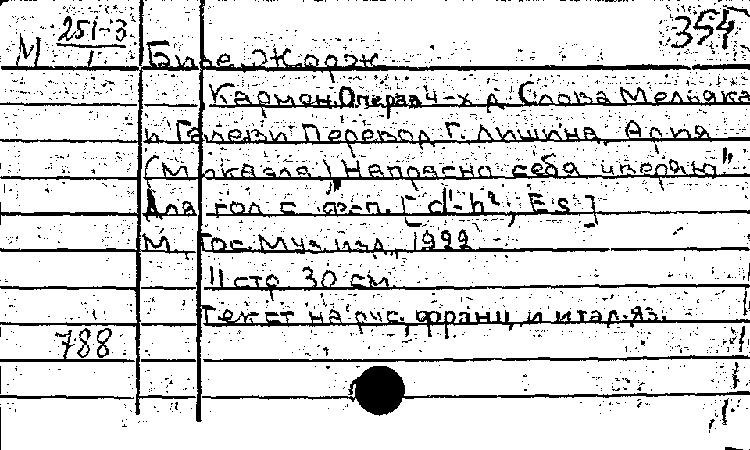 M 251-3
1
354
Бизе, Жорж
Кармен. Опера в 4-х д. Слова Мельяка
и Галеви Перевод Г. Лишина. Ария
(Микаэла) "Напрасно себя уверяю"
Для гол. с ф-п. [d¹-h², Es]
М., Гос. муз. изд., 1922
11 стр. 30 см
Текст на рус., франц. и итал. яз.
788